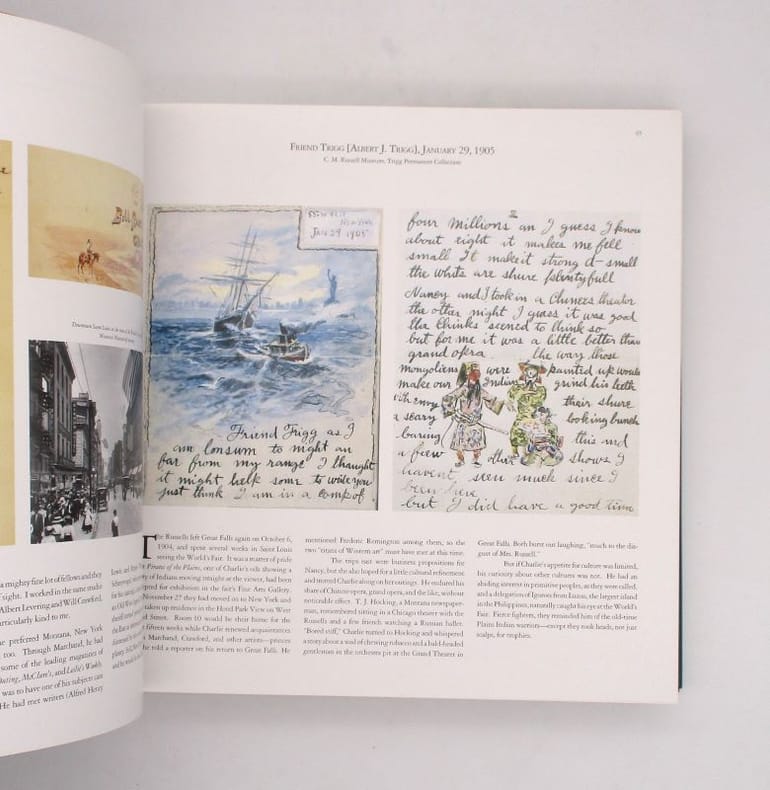 Downtown Saint Louis
a mighty fine lot of fellows and they
sight. I worked in the same studio
Albert Levering and Will Crawford,
articularly kind to me.
e preferred Montana, New York
too. Through Marchand, he had
some of the leading magazines of
Outing, McClure's, and Leslie's Weekly.
was to have one of his subjects cast
He had met writers (Alfred Henry
65
Friend Trigg [Albert J. Trigg], January 29, 1905
C. M. Russell Museum, Trigg Permanent Collection
New York
Jan 29 1905
Friend Trigg as I
am lonsum to night an
far from my range I thaught
it might help som to write you
just think I am in a camp of
four millions an I guess I know
about eight it makes me fell
small I make it strong d— small
the whits are shure plentyfull
Nancy and I took in a Chinees theator
the other night I guess it was good
the chinks seemed to think so
but for me it was a little better than
grand opera. the way those
mongolions were painted up would
make our Indians grind his teeth
with envy their shure
a scary looking bunch
baring this and
a fiew other shows I
havent seen much since I
been here
but I did have a good time
The Russells left Great Falls again on October 6,
1904, and spent several weeks in Saint Louis
seeing the World's Fair. It was a matter of pride
Pirates of the Plains, one of Charlie's oils showing a
of Indians moving intently at the viewer, had been
accepted for exhibition in the fair's Fine Arts Gallery.
November 27 they had moved on to New York and
taken up residence in the Hotel Park View on West
Street. Room 10 would be their home for the
fifteen weeks while Charlie renewed acquaintances
Marchand, Crawford, and other artists—princes
he told a reporter on his return to Great Falls. He
mentioned Frederic Remington among them, so the
two "titans of Western art" must have met at this time.
The trips east were business propositions for
Nancy, but she also hoped for a little cultural refinement
and steered Charlie along on her outings. He endured his
share of Chinese opera, grand opera, and the like, without
noticeable effect. T. J. Hocking, a Montana newspaper-
man, remembered sitting in a Chicago theater with the
Russells and a few friends watching a Russian ballet.
"Bored stiff," Charlie turned to Hocking and whispered
a story about a wad of chewing tobacco and a bald-headed
gentleman in the orchestra pit at the Grand Theater in
Great Falls. Both burst out laughing, "much to the dis-
gust of Mrs. Russell."
But if Charlie's appetite for culture was limited,
his curiosity about other cultures was not. He had an
abiding interest in primitive peoples, as they were called,
and a delegation of Igorots from Luzon, the largest island
in the Philippines, naturally caught his eye at the World's
Fair. Fierce fighters, they reminded him of the old-time
Plains Indian warriors—except they took heads, not just
scalps, for trophies.